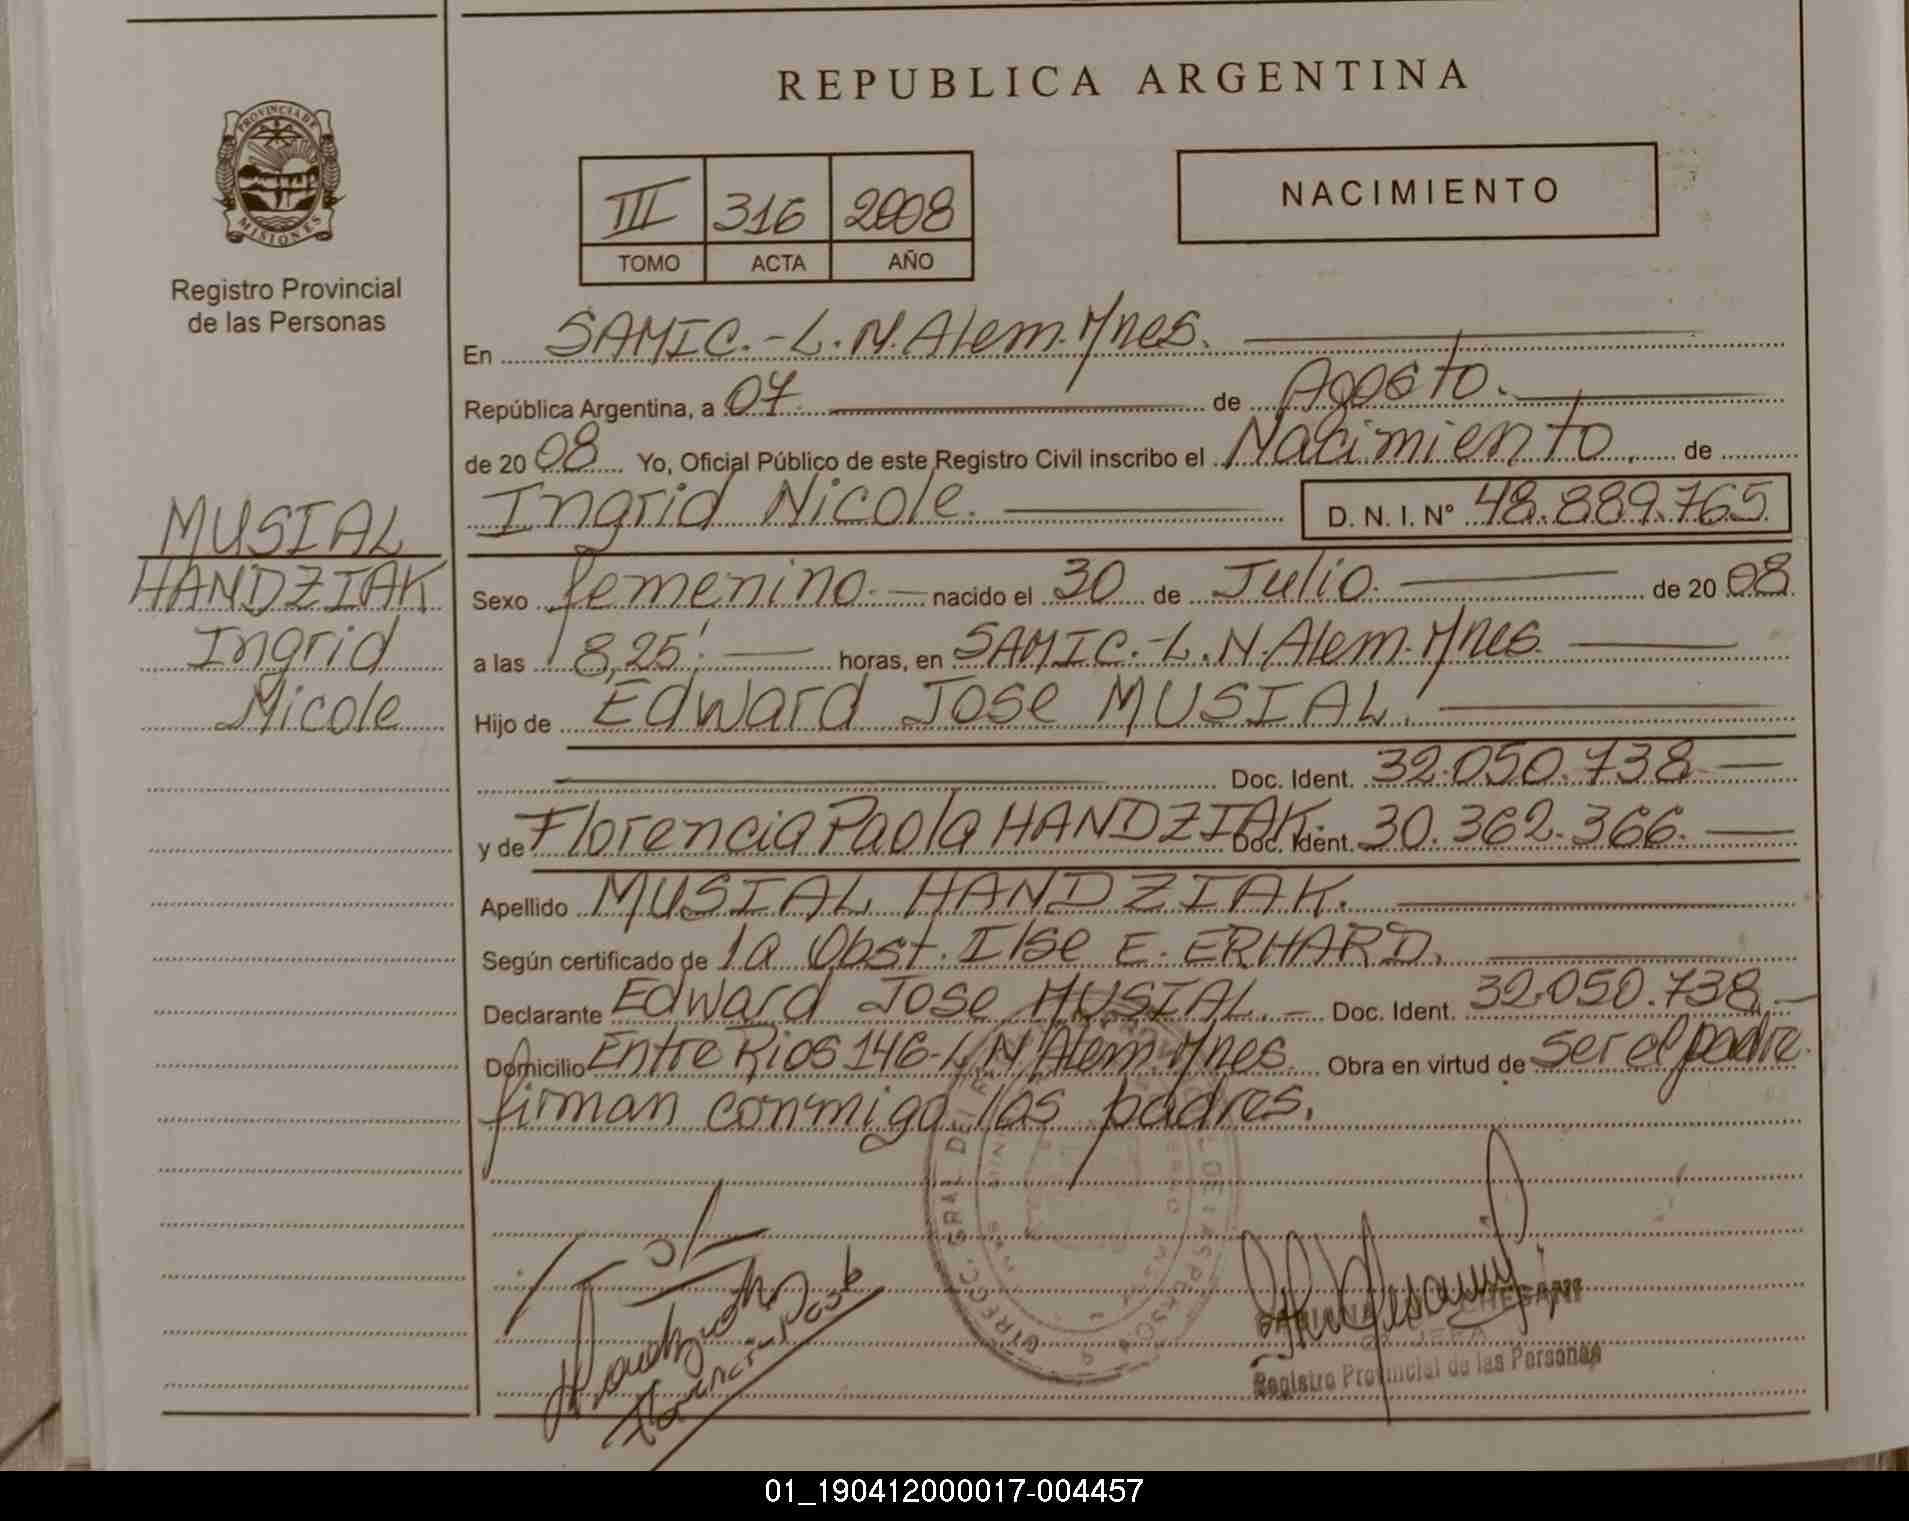 REPUBLICA ARGENTINA
PROVINCIA DE
MISIONES
Registro Provincial
de las Personas
III 316 2008
TOMO ACTA AÑO
NACIMIENTO
En SAMIC.-L.N.Alem.Mnes.
República Argentina, a 07 de Agosto.
de 20 08 Yo, Oficial Público de este Registro Civil inscribo el Nacimiento. de
Ingrid Nicole. D. N. I. Nº 48.889.765
MUSIAL
HANDZIAK
Ingrid
Nicole
Sexo femenino.- nacido el 30 de Julio. de 20 08
a las 18,25'. horas, en SAMIC.-L.N.Alem.Mnes.
Hijo de Edward Jose MUSIAL.
Doc. Ident. 32.050.738
y de Florencia Paola HANDZIAK. Doc. Ident. 30.362.366.
Apellido MUSIAL HANDZIAK.
Según certificado de la Obst. Ilse E. ERHARD.
Declarante Edward Jose MUSIAL.- Doc. Ident. 32.050.738.-
Domicilio Entre Rios 146-L.N Alem.Mnes. Obra en virtud de ser el padre.
firman conmigo los padres.
Registro Provincial de las Personas
01_190412000017-004457